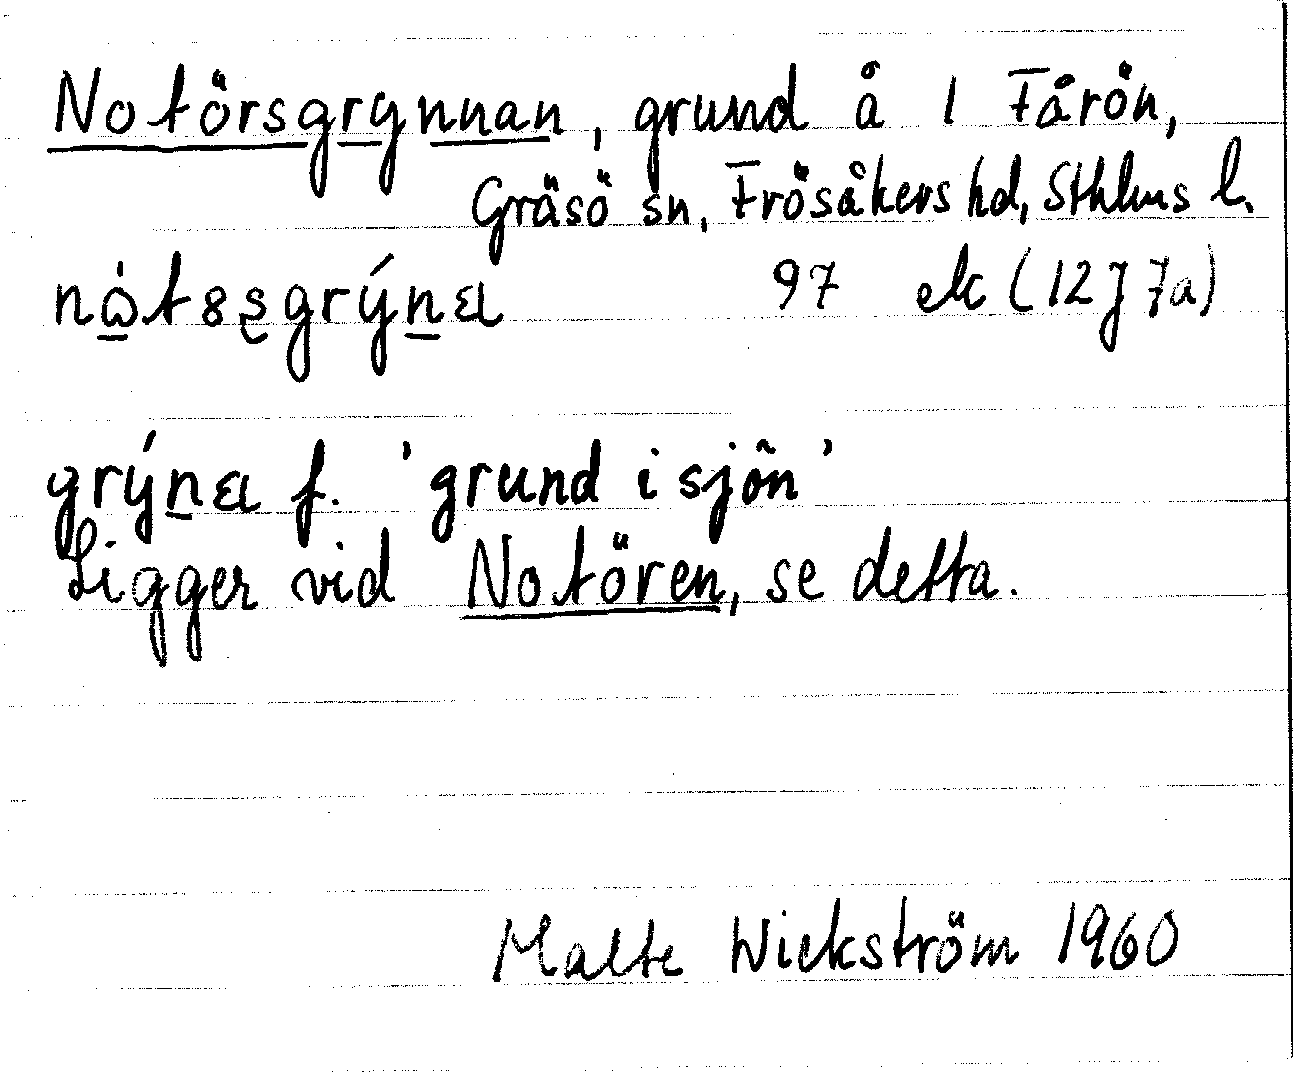 Notörsgrynnan, grund å 1 Fårön,
Gräsö sn, Frösåkers hd, Sthlms l.
nω̲̇t8s̨grýn̲ɛɩ 97 ek (12J7a)
grýn̲ɛɩ f. 'grund i sjön'
Ligger vid Notören, se detta.
Malte Wickström 1960